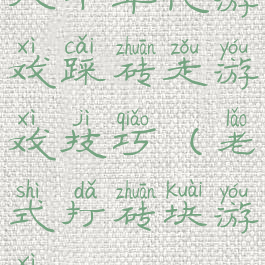 xì cǎi zhuān zǒu yóu
戏踩砖走游
xì jì qiǎo lǎo
戏技巧（老
shì dǎ zhuān kuài yóu
式打砖块游
xì